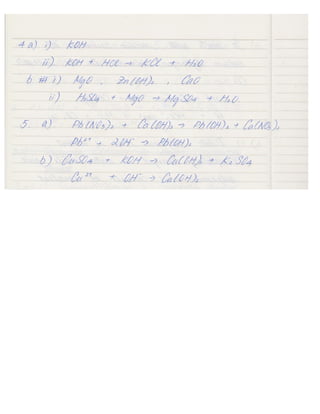 4 a) i) KOH
ii) KOH + HCl → KCl + H₂O
b i) MgO , Zn(OH)₂ , CaO
ii) H₂SO₄ + MgO → MgSO₄ + H₂O.
5. a) Pb(NO₃)₂ + Ca(OH)₂ → Pb(OH)₂ + Ca(NO₃)₂
Pb²⁺ + 2OH⁻ → Pb(OH)₂
b) CuSO₄ + KOH → Cu(OH)₂ + K₂SO₄
Cu²⁺ + OH⁻ → Cu(OH)₂